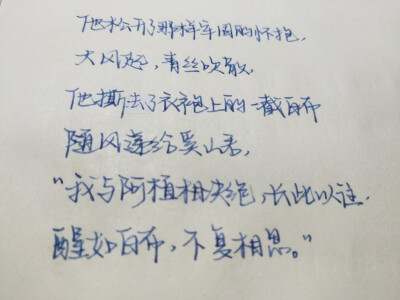 他松开了那样牢固的怀抱，
大风起，青丝吹散，
他撕去了衣袍上的一截白布
随风递给奚山君，
“我与阿植相决绝，长此以往，
醒如白布，不复相思。”